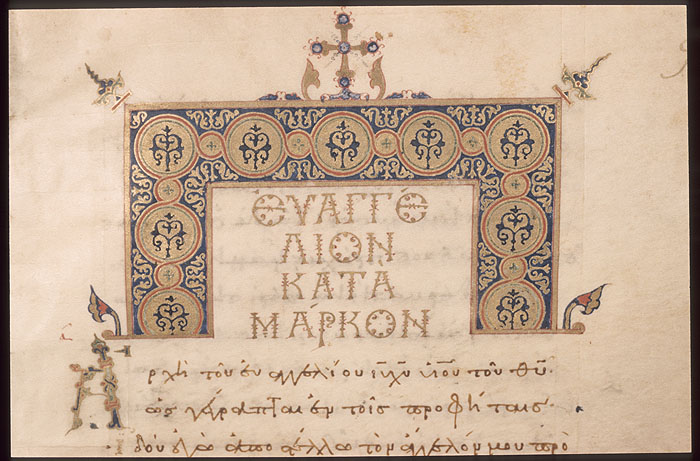 ΕΥΑΓΓΕ
ΛΙΟΝ
ΚΑΤΑ
ΜΆΡΚΟΝ
Ἀρχὴ τοῦ εὐαγγελίου ι̅υ̅ χ̅υ̅ υἱοῦ τοῦ θ̅υ̅
ὡς γέγραπται ἐν τοῖς προφήταις
ἰδοὺ ἐγὼ ἀποστέλλω τὸν ἄγγελόν μου πρὸ